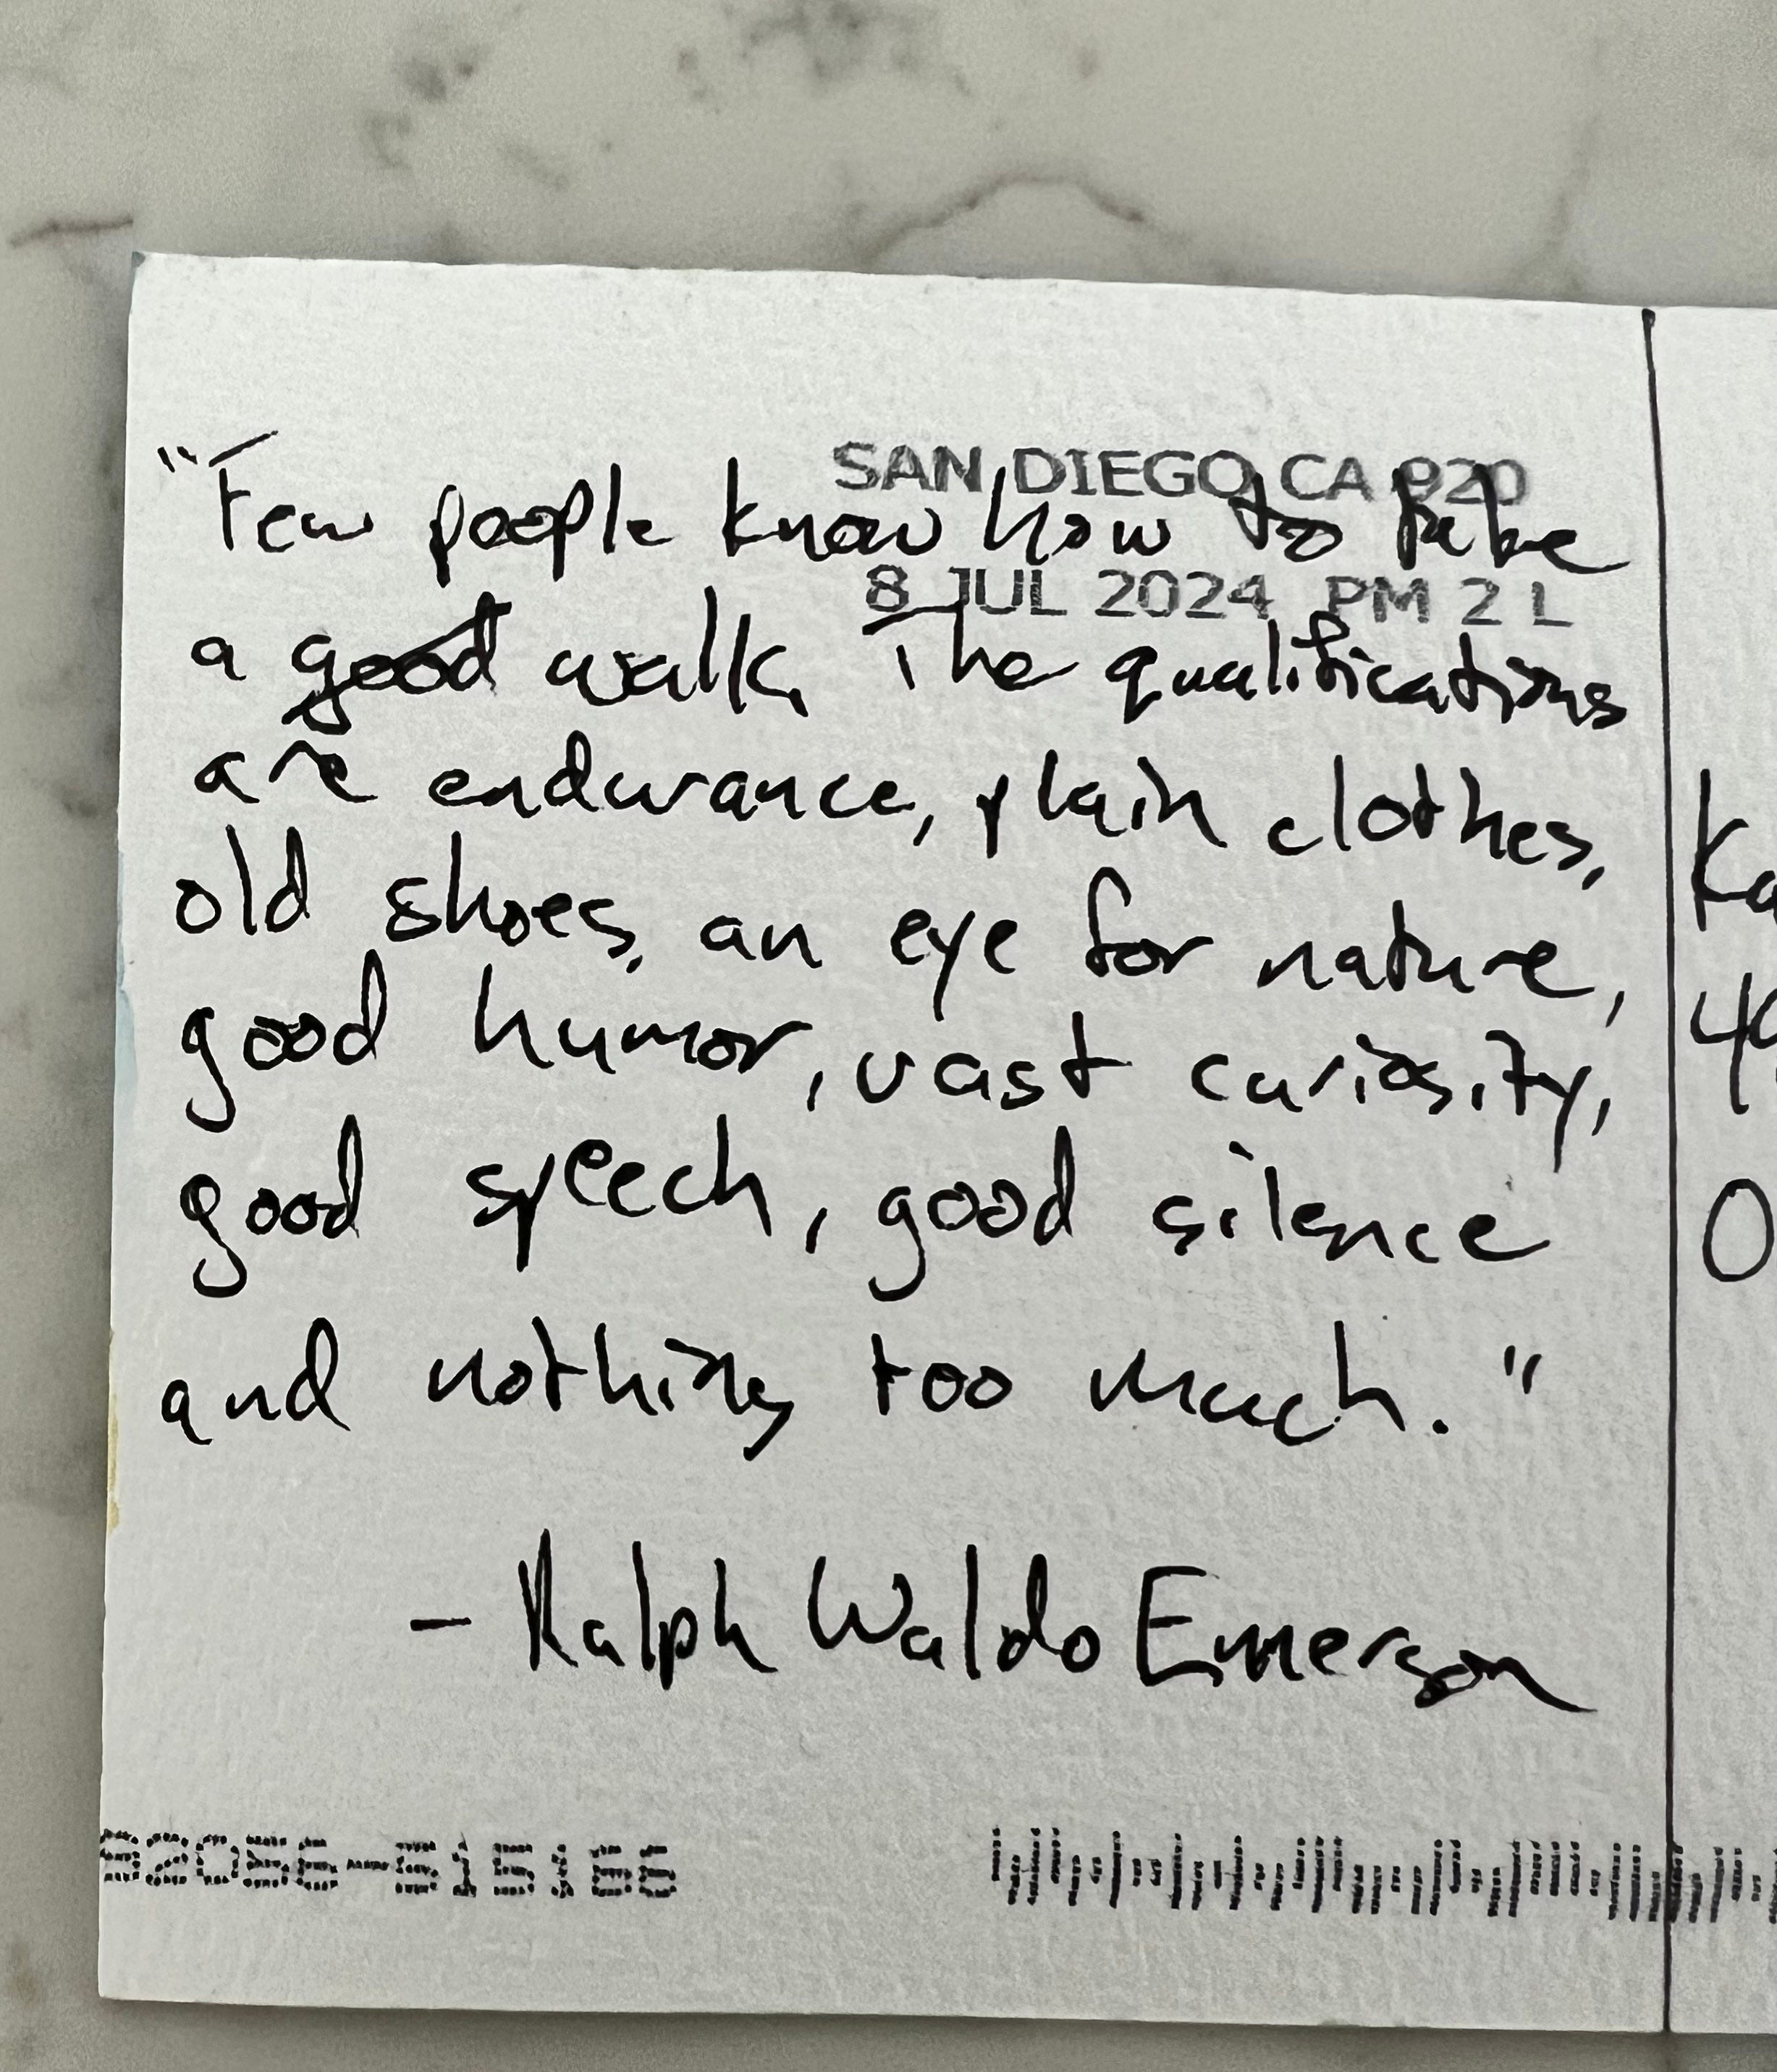 SAN DIEGO CA 920
8 JUL 2024 PM 2 L
"Few people know how to take
a good walk. The qualifications
are endurance, plain clothes,
old shoes, an eye for nature,
good humor, vast curiosity,
good speech, good silence
and nothing too much."
- Ralph Waldo Emerson
Ka
0